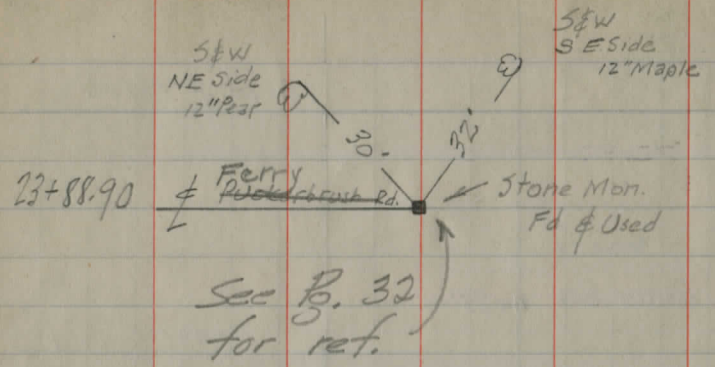 S&W
NE Side
12" Pear
S&W
SE Side
12" Maple
30'
32'
23+88.90 ℄ Ferry
Puckerbrush Rd.
Stone Mon.
Fd & Used
See Pg. 32
for ref.